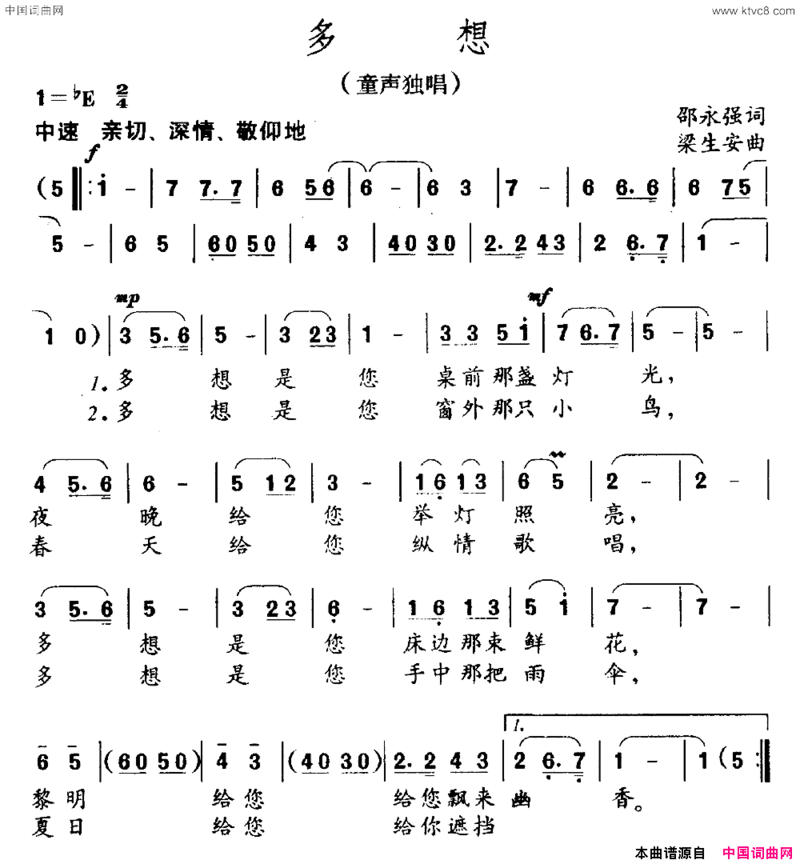 中国词曲网
www.ktvc8.com
多想
（童声独唱）
1=♭E 2/4
邵永强词
中速 亲切、深情、敬仰地
梁生安曲
f
(5 ‖: i - | 7 7. 7 | 6 56 | 6 - | 6 3 | 7 - | 6 6. 6 | 6 75 |
5 - | 6 5 | 60 50 | 4 3 | 40 30 | 2. 2 43 | 2 6. 7 | 1 - |
mp mf
1 0) | 3 5. 6 | 5 - | 3 23 | 1 - | 3 3 5 i | 7 6. 7 | 5 - | 5 - |
1. 多 想 是 您 桌 前 那 盏 灯 光，
2. 多 想 是 您 窗 外 那 只 小 鸟，
4 5. 6 | 6 - | 5 12 | 3 - | 16 13 | 6 5 | 2 - | 2 - |
夜 晚 给 您 举 灯 照 亮，
春 天 给 您 纵 情 歌 唱，
3 5. 6 | 5 - | 3 23 | 6 - | 16 13 | 5 i | 7 - | 7 - |
多 想 是 您 床 边 那 束 鲜 花，
多 想 是 您 手 中 那 把 雨 伞，
1.
6 5 | (60 50) | 4 3 | (40 30) | 2. 2 4 3 | 2 6. 7 | 1 - | 1 (5 :‖
黎 明 给 您 给 您 飘 来 幽 香。
夏 日 给 您 给 你 遮 挡
本曲谱源自 中国词曲网